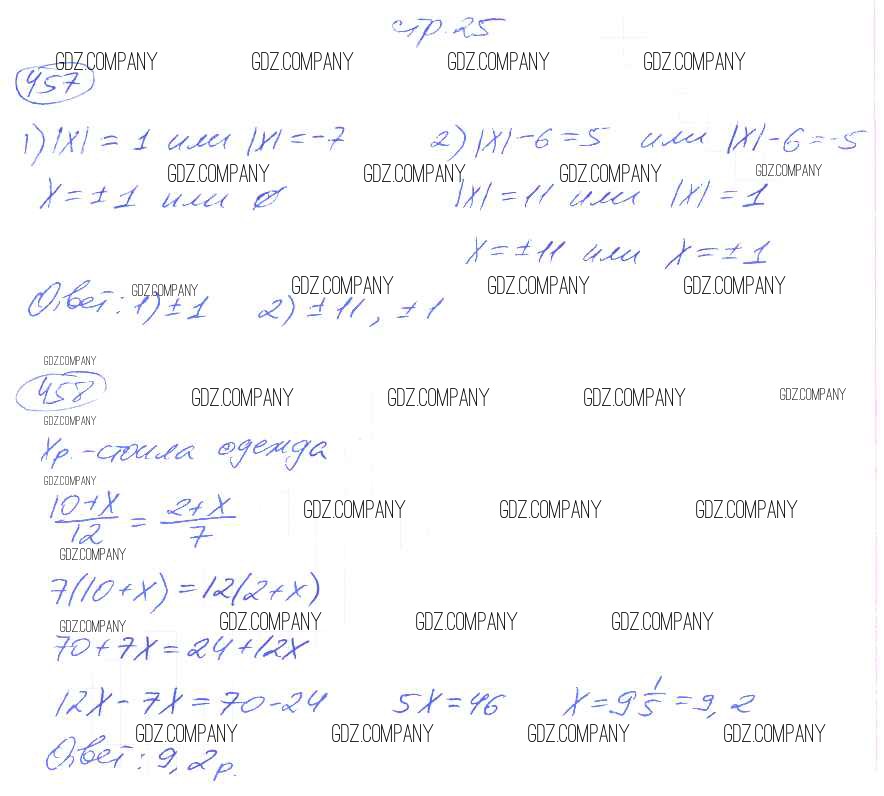 стр. 25
GDZ.COMPANY GDZ.COMPANY GDZ.COMPANY GDZ.COMPANY
457
1) |x| = 1 или |x| = -7 2) |x| - 6 = 5 или |x| - 6 = -5
GDZ.COMPANY GDZ.COMPANY GDZ.COMPANY GDZ.COMPANY
x = ±1 или ø |x| = 11 или |x| = 1
x = ±11 или x = ±1
GDZ.COMPANY GDZ.COMPANY GDZ.COMPANY GDZ.COMPANY
Ответ: 1) ±1 2) ±11, ±1
GDZ.COMPANY
458
GDZ.COMPANY GDZ.COMPANY GDZ.COMPANY GDZ.COMPANY
GDZ.COMPANY
Xр. - стоила одежда
GDZ.COMPANY
10+x/12 = 2+x/7
GDZ.COMPANY GDZ.COMPANY GDZ.COMPANY
GDZ.COMPANY
7(10+x) = 12(2+x)
GDZ.COMPANY GDZ.COMPANY GDZ.COMPANY GDZ.COMPANY
70+7x = 24+12x
12x - 7x = 70 - 24 5x = 46 x = 9 1/5 = 9,2
GDZ.COMPANY GDZ.COMPANY GDZ.COMPANY GDZ.COMPANY
Ответ: 9,2 р.